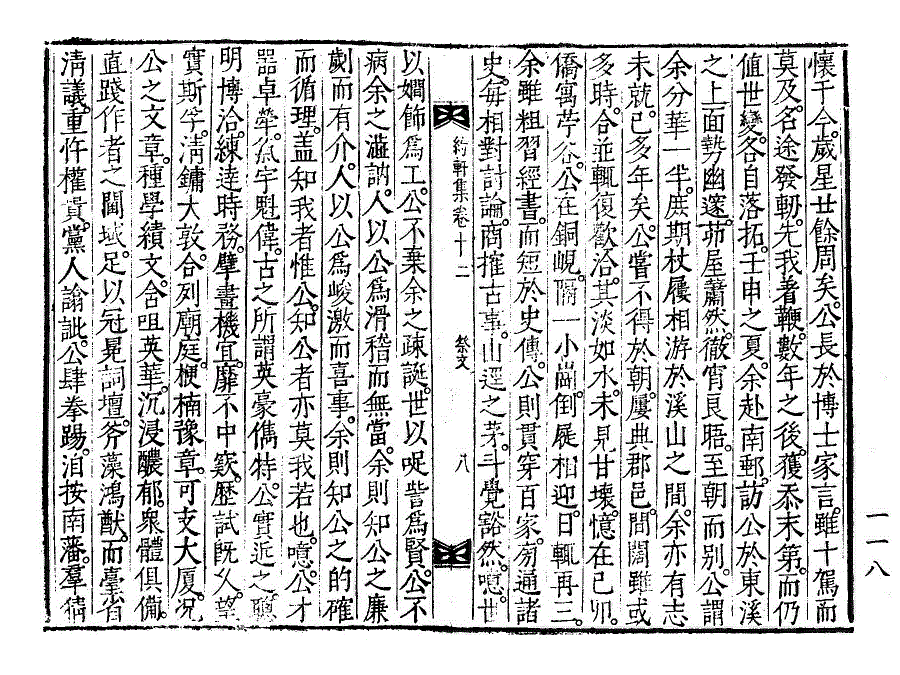 懷于今。歲星廿餘周矣。公長於博士家言。雖十駕而
莫及。名途發軔。先我著鞭。數年之後。獲忝末第。而仍
值世變。各自落拓。壬申之夏。余赴南郵。訪公於東溪
之上。面勢幽邃。茆屋蕭然。徹宵良晤。至朝而別。公謂
余分華一半。庶期杖屨相游於溪山之間。余亦有志
未就。已多年矣。公嘗不得於朝。屢典郡邑。間闊雖或
多時。合並輒復歡洽。其淡如水。未見甘壞。憶在己卯。
僑寓芹谷。公在銅峴。隔一小崗。倒屣相迎。日輒再三。
余雖粗習經書。而短於史傳。公則貫穿百家。旁通諸
史。每相對討論。商搉古事。山逕之茅。斗覺豁然。噫。世
約軒集卷十二 祭文 八
以嫺飾爲工。公不棄余之疎誕。世以哫訾爲賢。公不
病余之澁訥。人以公爲滑稽而無當。余則知公之廉
劌而有介。人以公爲峻激而喜事。余則知公之的確
而循理。盖知我者惟公。知公者亦莫我若也。噫。公才
器卓犖。氣宇魁偉。古之所謂英豪儁特。公實近之。聰
明博洽。練達時務。擘畫機宜。靡不中窾。歷試旣久。望
實斯孚。淸鏞大敦。合列廟庭。梗楠豫章。可支大厦。况
公之文章。種學績文。含咀英華。沉浸醲郁。衆體俱備。
直踐作者之閫域。足以冠冕詞壇。斧藻鴻猷。而臺省
淸議。重忤權貴。黨人諭訿。公肆拳踢。洎按南藩。羣猜
一一八